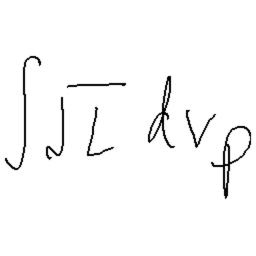 ∫√L dv_p